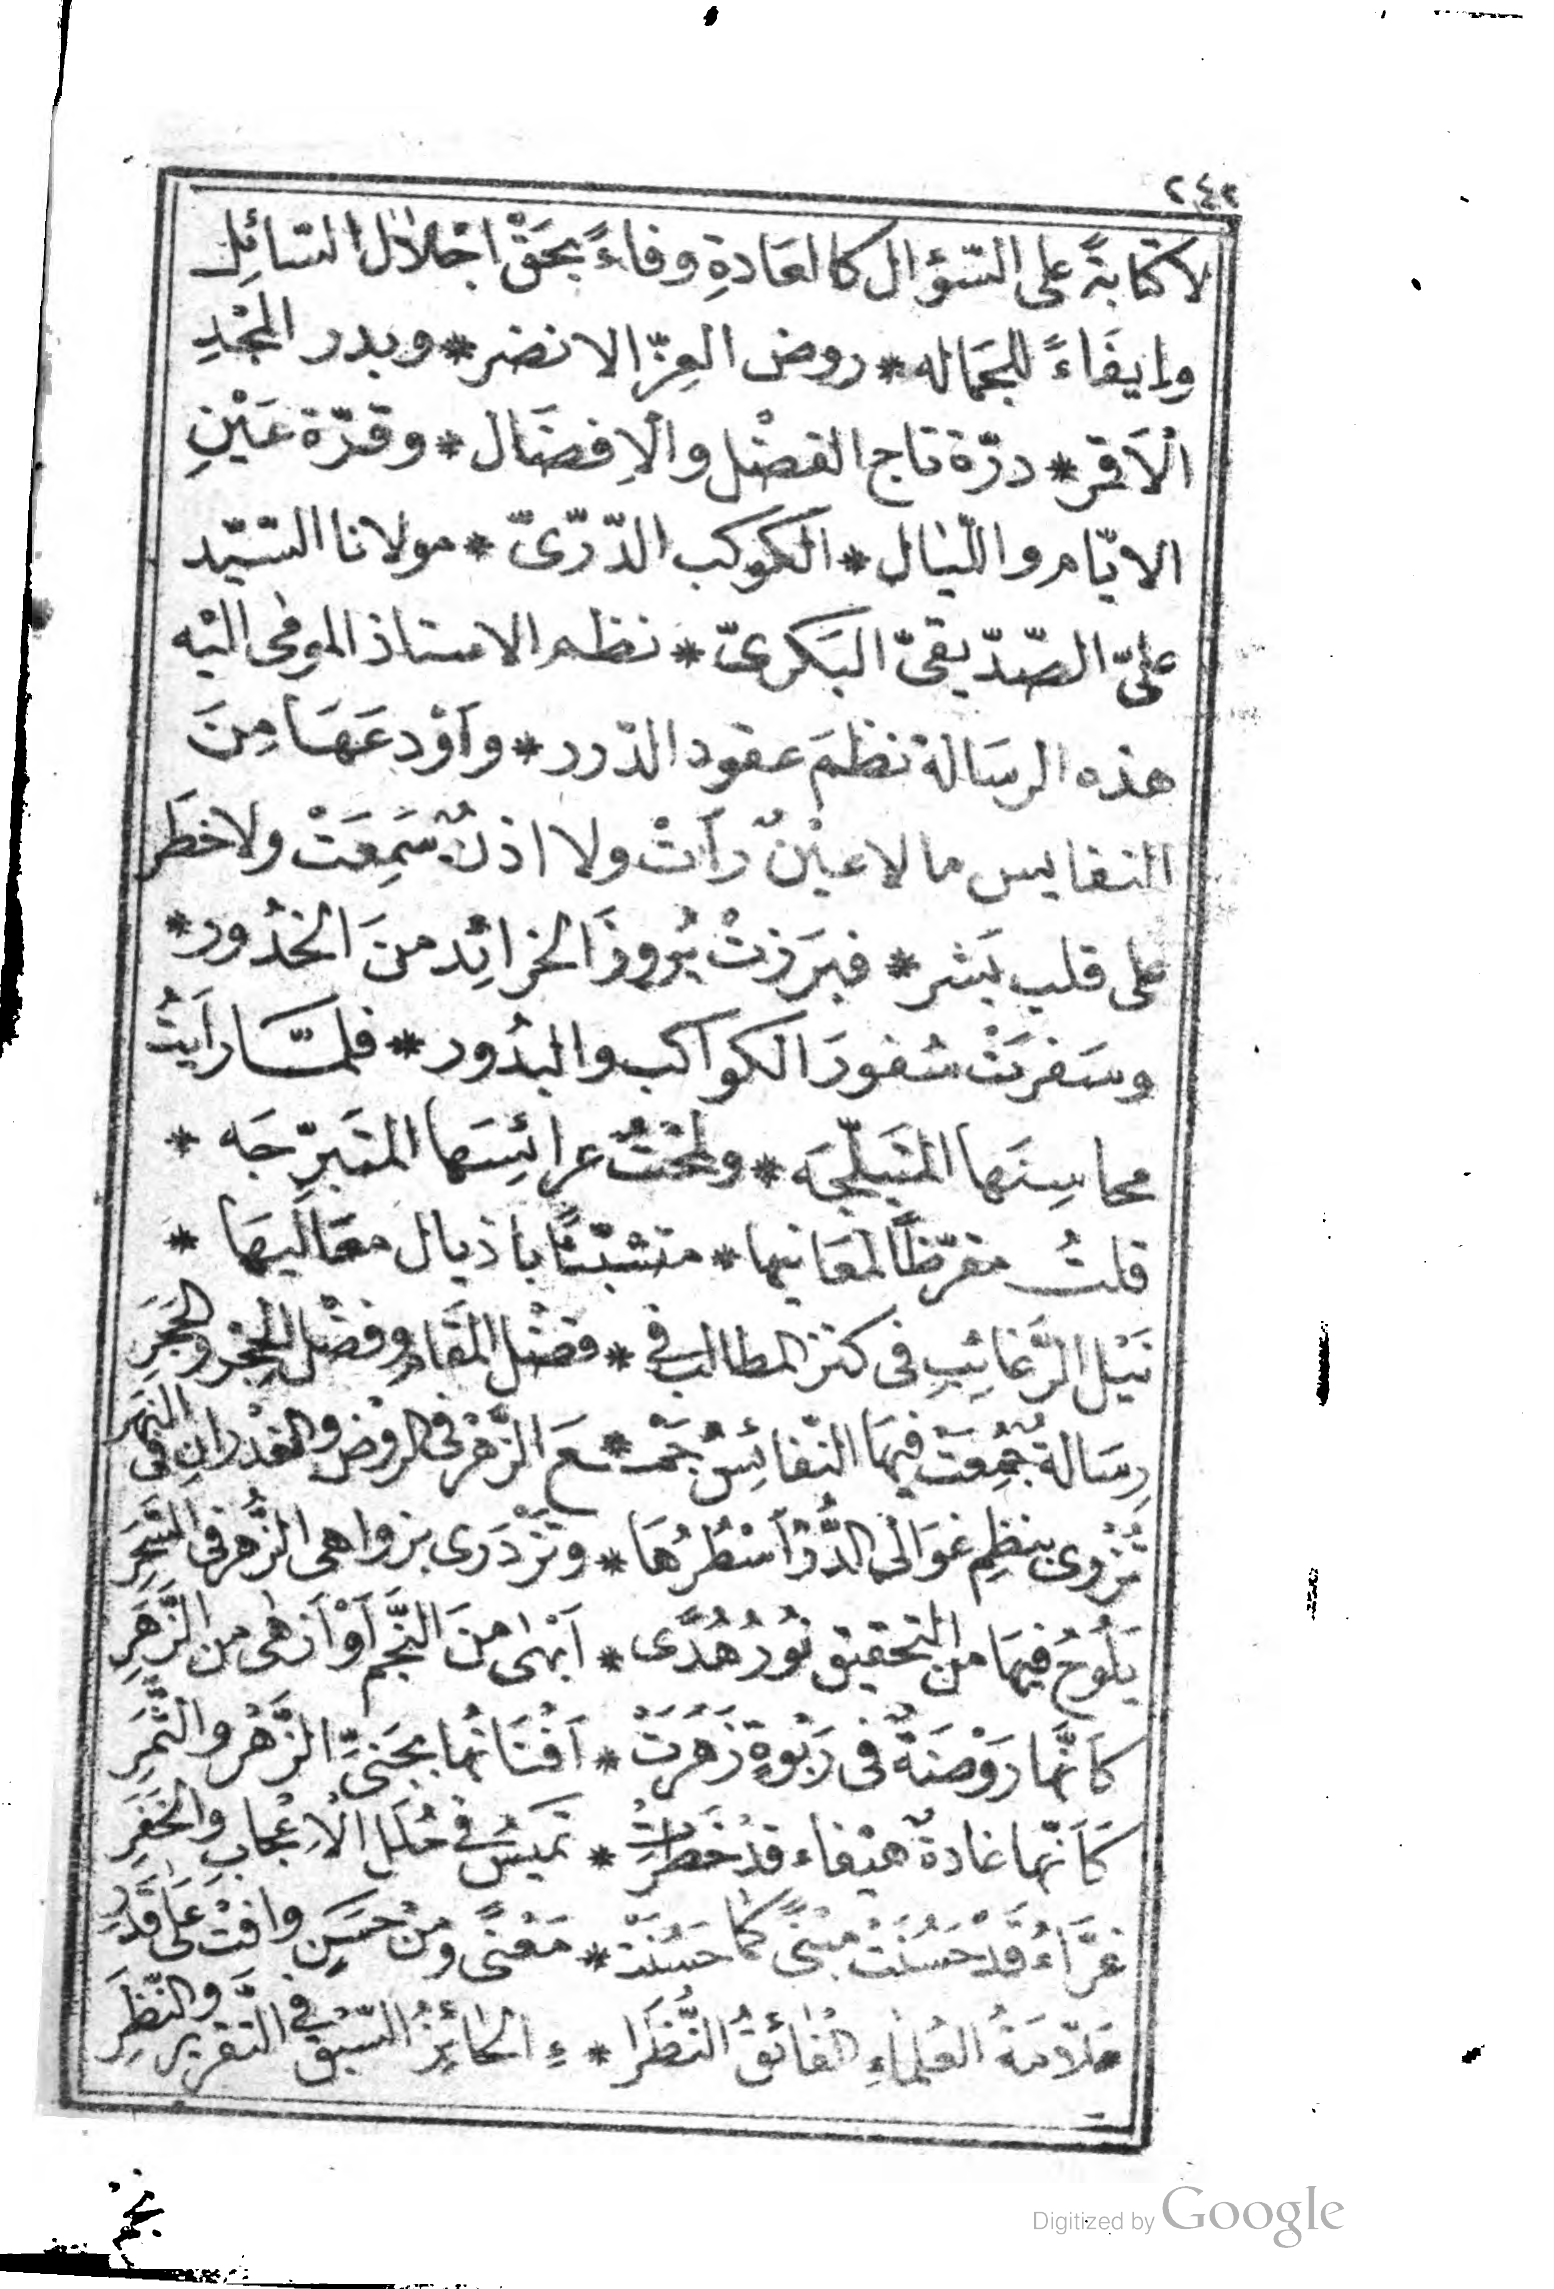 ٢٤٢
لا كتابةً على السّؤال كالعَادةِ وفاءً بحَقّ اجْلالِ السّائِلِ
وإيفَاءً للجَماله * روض العِزّ الانضر * وبدر المجْدِ
الْاَقمَر * درّة تاج الفضْل والْاِفضَال * وقرّة عَيْنِ
الايّام واللّيَال * الكوكب الدّرّىّ * مولانا السّيّد
علىّ الصّدّيقىّ البَكرىّ * نظم الاستاذ المومٰى اليْه
هذه الرسَالة نظمَ عقود الدّرر * وَاَوْدعَهَا مِنَ
النفايس ما لا عيْنٌ رَأتْ ولا اذنٌ سَمِعَتْ ولا خطَر
على قلب بَشر * فبَرَزتْ بُروزَ الخرائِد منَ الخدُور *
وسَفرَتْ سُفورَ الكواكب والبدُور * فلمَّا رَاَيتُ
محاسِنَها المتَبلّجَه * ولمحْتُ عرائِسَها المتَبرّجَه *
قلتُ مقرّظًا لمعَانيها * متشبّثًا باذيال معَاليهَا *
نَيْل الرَّغائِبِ فى كنز المطالب فى * فضْل المقَامِ وفضْل الحِجْر والحَجَرِ
رِسَالةٌ جُمِعَتْ فيهَا النّفائِسُ جَمْـ * ـعَ الزَّهْر فى الروْض والغدْرانِ فى النهَر
تُزْرى بنظمِ غوَالى الدُّرّ اَسْطُرُهَا * وتَزْدَرى بزواهى الزُّهر فى السَّحَرِ
يَلُوحُ فيهَا من التحقيق نُورُ هُدًى * اَبْهٰى منَ النَّجْم اَوْ اَزهٰى من الزَّهَرِ
كَاَنَّها رَوْضَةٌ فى رَبْوةٍ زَهَرَتْ * اَفْنَانُها بجَنىِّ الزَّهْر والثَّمَرِ
كَاَنّها غادةٌ هيْفاء قدْ خَطَرتْ * تميسُ فى حُلَلِ الْاِعْجابِ والخَفَرِ
غرَّاءُ قَدْ حَسُنَتْ مبْنًى كما حَسُنَتْ * مَعْنًى ومنْ حَسَنٍ وافتْ عَلٰى قَدَرِ
علّامَةُ العُلماءِ الفائقُ النُّظَرا * ءِ الحائِزُ السّبْقِ فى التقرير والنّظَرِ
Digitized by Google